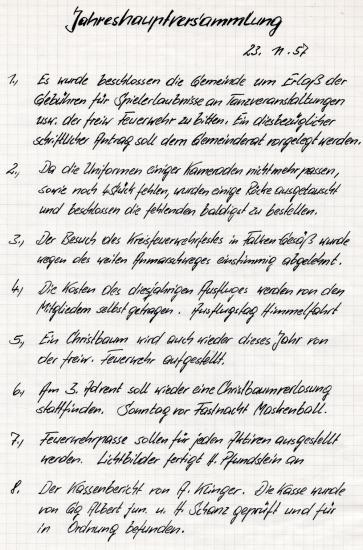 Jahreshauptversammlung
23. 11. 57
1., Es wurde beschlossen die Gemeinde um Erlaß der
Gebühren für Spielerlaubnisse an Tanzveranstaltungen
usw. der freiw. Feuerwehr zu bitten. Ein diesbezüglicher
schriftlicher Antrag soll dem Gemeinderat vorgelegt werden.
2., Da die Uniformen einiger Kameraden nicht mehr passen,
sowie noch 4 Stück fehlen, wurden einige Röcke ausgetauscht
und beschlossen die fehlenden baldigst zu bestellen.
3., Der Besuch des Kreisfeuerwehrfestes in Falken Gesäß wurde
wegen des weiten Anmarschweges einstimmig abgelehnt.
4., Die Kosten des diesjährigen Ausfluges werden von den
Mitgliedern selbst getragen. Ausflugstag Himmelfahrt
5., Ein Christbaum wird auch wieder dieses Jahr von
der freiw. Feuerwehr aufgestellt.
6., Am 3. Advent soll wieder eine Christbaumverlosung
stattfinden. Sonntag vor Fastnacht Maskenball.
7., Feuerwehrpässe sollen für jeden Aktiven ausgestellt
werden. Lichtbilder fertigt H. Pfundstein an
8. Der Kassenbericht von A. Klinger. Die Kasse wurde
von Gg Albert jun. u. H. Schanz geprüft und für
in Ordnung befunden.